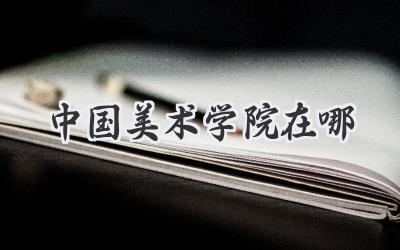 中国美术学院在哪